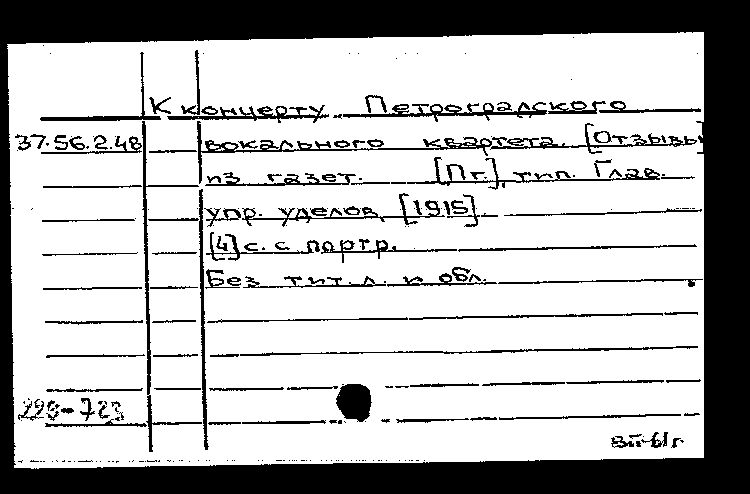 К концерту Петроградского
37.56.2.48 вокального квартета. [Отзывы
из газет. [Пг.], тип. Глав.
упр. уделов, [1915].
[4] с. с портр.
Без тит. л. и обл.
229-723